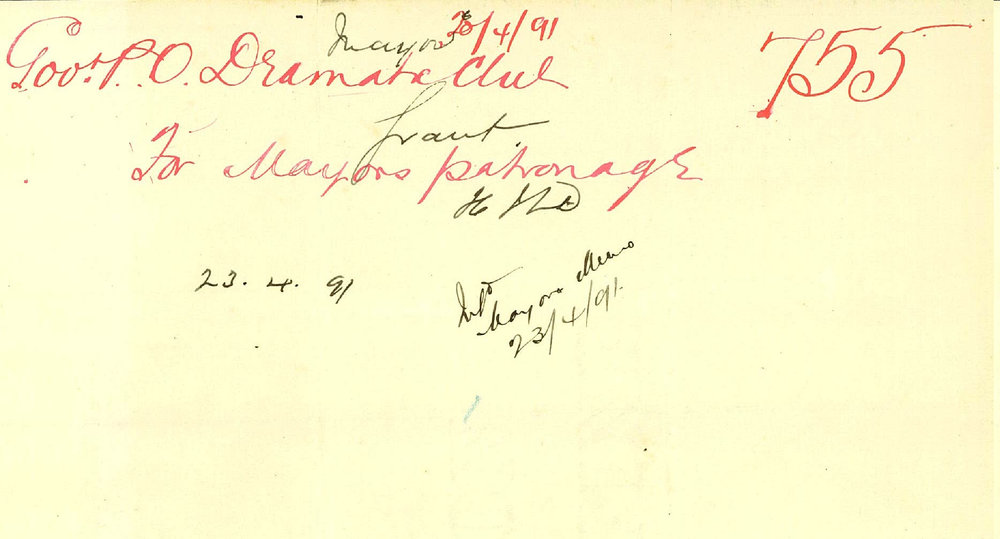 Mayor 20/4/91
Govt P.O. Dramatic Club
755
Grant.
For Mayors patronage
23.4.91
Mayors Memo
23/4/91